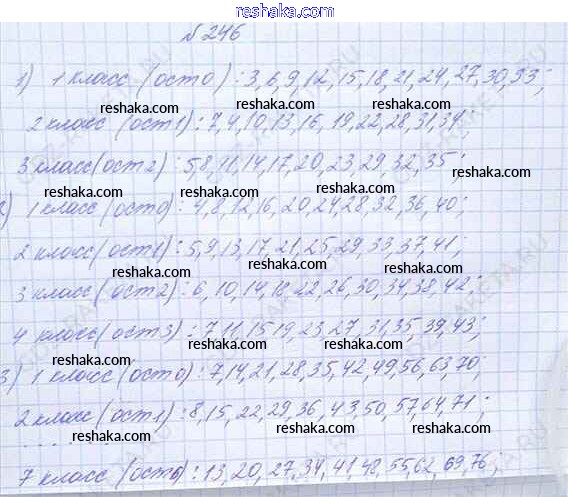 reshaka.com
№ 246
1) 1 класс (ост 0) : 3, 6, 9, 12, 15, 18, 21, 24, 27, 30, 33;
reshaka.com reshaka.com
2 класс (ост 1) : 7, 4, 10, 13, 16, 19, 22, 28, 31, 34;
reshaka.com reshaka.com
3 класс (ост 2) : 5, 8, 11, 14, 17, 20, 23, 29, 32, 35;
reshaka.com reshaka.com
2) 1 класс (ост 0) : 4, 8, 12, 16, 20, 24, 28, 32, 36, 40;
reshaka.com reshaka.com
2 класс (ост 1) : 5, 9, 13, 17, 21, 25, 29, 33, 37, 41;
reshaka.com reshaka.com
3 класс (ост 2) : 6, 10, 14, 18, 22, 26, 30, 34, 38, 42;
reshaka.com
4 класс (ост 3) : 7, 11, 15, 19, 23, 27, 31, 35, 39, 43;
reshaka.com reshaka.com
3) 1 класс (ост 0) : 7, 14, 21, 28, 35, 42, 49, 56, 63, 70;
reshaka.com reshaka.com
2 класс (ост 1) : 8, 15, 22, 29, 36, 43, 50, 57, 64, 71;
. . . . . . . .
reshaka.com reshaka.com
7 класс (ост 6) : 13, 20, 27, 34, 41, 48, 55, 62, 69, 76;
reshaka.com reshaka.com